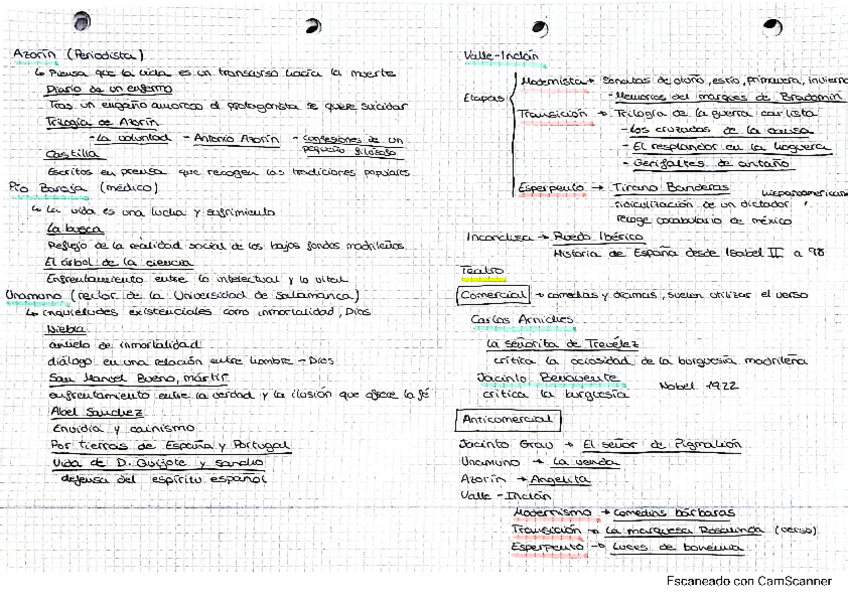 Azorín (Periodista)
↳ Piensa que la vida es un transcurso hacia la muerte
Diario de un enfermo
Tras un engaño amoroso el protagonista se quiere suicidar
Trilogía de Azorín
- La voluntad - Antonio Azorín - Confesiones de un pequeño filósofo
Castilla
Escritos en prensa que recogen las tradiciones populares
Pío Baroja (médico)
↳ La vida es una lucha y sufrimiento
La busca
Reflejo de la realidad social de los bajos fondos madrileños
El árbol de la ciencia
Enfrentamiento entre lo intelectual y lo vital
Unamuno (rector de la Universidad de Salamanca)
↳ inquietudes existenciales como inmortalidad, Dios
Niebla
anhelo de inmortalidad
diálogo en una relación entre hombre - Dios
San Manuel Bueno, mártir
enfrentamiento entre la verdad y la ilusión que ofrece la fé
Abel Sanchez
Envidia y cainismo
Por tierras de España y Portugal
Vida de D. Quijote y Sancho
defensa del espíritu español
Valle-Inclán
Etapas
Modernista → Sonatas de otoño, estío, primavera, invierno
- Memorias del marques de Bradomin
Transición → Trilogía de la guerra carlista
- Los cruzados de la causa
- El resplandor en la hoguera
- Gerifaltes de antaño
Esperpento → Tirano Banderas
ridiculización de un dictador hispanoamericano
recoge vocabulario de méxico
Inconclusa → Ruedo Ibérico
Historia de España desde Isabel II a 98
Teatro
Comercial → comedias y dramas, suelen utilizar el verso
Carlos Arniches
La señorita de Trevélez
crítica la ociosidad de la burguesía madrileña
Jacinto Benavente Nobel 1922
crítica la burguesía
Anticomercial
Jacinto Grau → El señor de Pigmalión
Unamuno → La venda
Azorín → Angelita
Valle-Inclán
Modernismo → Comedias bárbaras
Transición → La marquesa Rosalinda (verso)
Esperpento → Luces de bohemia
Escaneado con CamScanner